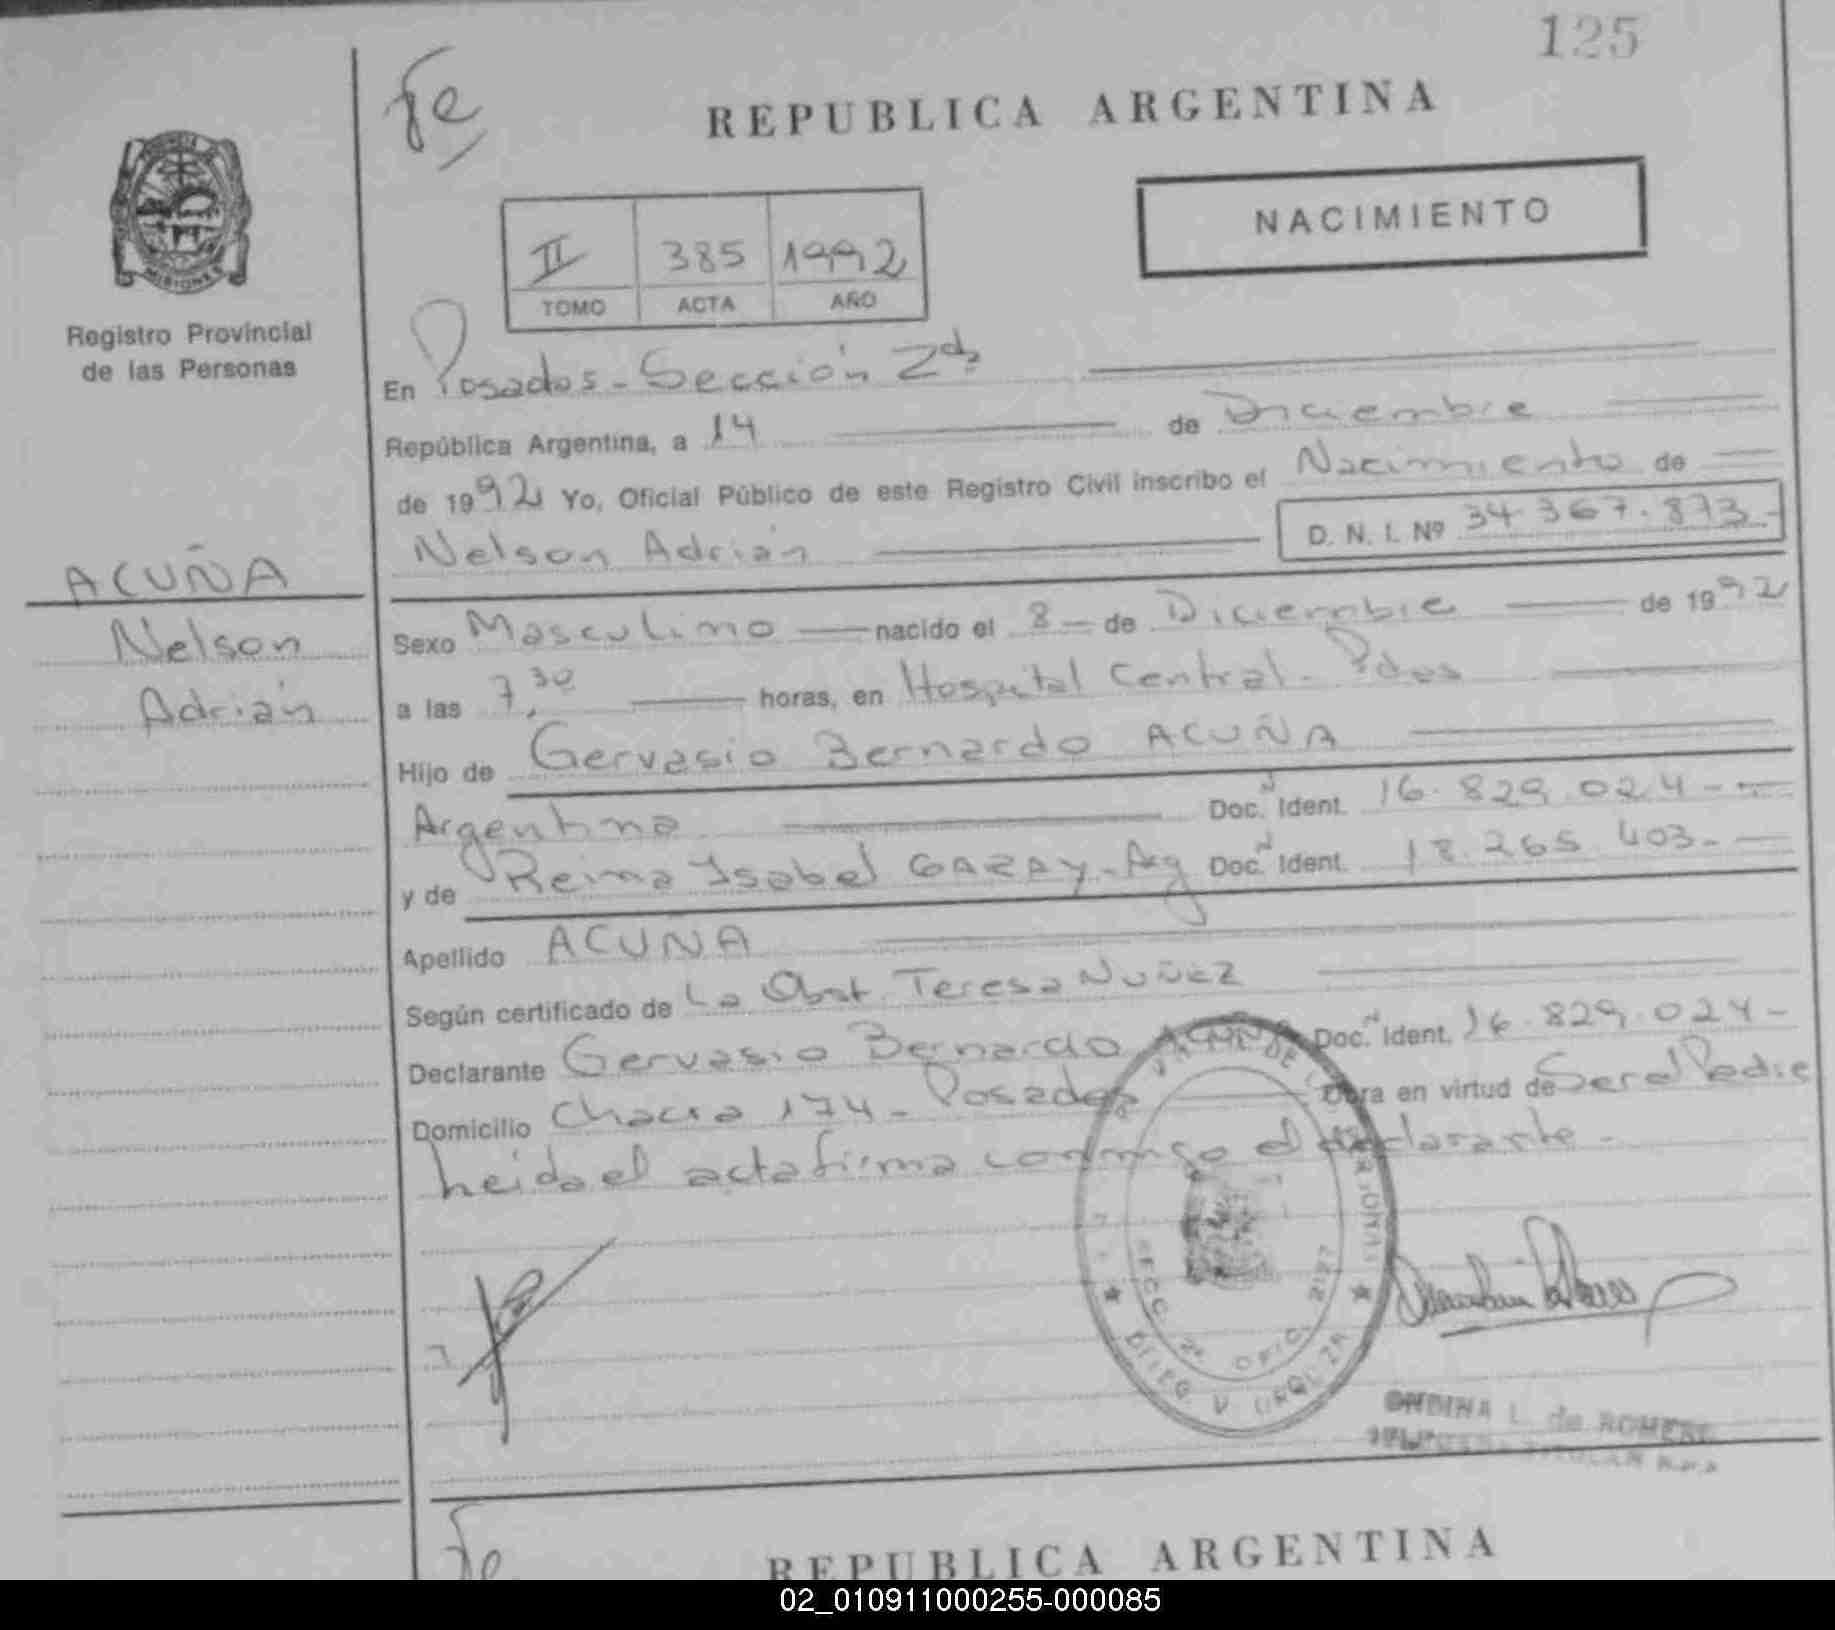 125
Fe
REPUBLICA ARGENTINA
MISIONES
Registro Provincial
de las Personas
NACIMIENTO
II 385 1992
TOMO ACTA AÑO
En Posadas - Sección 2da
República Argentina, a 14 de Diciembre
de 1992 Yo, Oficial Público de este Registro Civil inscribo el Nacimiento de
Nelson Adrián D. N. I. Nº 34.367.873.-
ACUÑA
Nelson
Adrián
Sexo Masculino nacido el 8 de Diciembre de 1992
a las 7,30 horas, en Hospital Central - Pdas
Hijo de Gervasio Bernardo ACUÑA
Argentina Doc. Ident. 16.829.024-
y de Reina Isabel GARAY - Arg Doc. Ident. 18.265.403-
Apellido ACUÑA
Según certificado de La Obst. Teresa NUÑEZ
Declarante Gervasio Bernardo ACUÑA Doc. Ident. 16.829.024-
Domicilio Chacra 174 - Posadas Obra en virtud de Ser el Padre
Leida el acta firma conmigo el declarante -
SECC. 2ª OFIC. 2127
DELEG. V. URQUIZA
ONDINA L. de ROMERO
REPUBLICA ARGENTINA
Fe
02_010911000255-000085